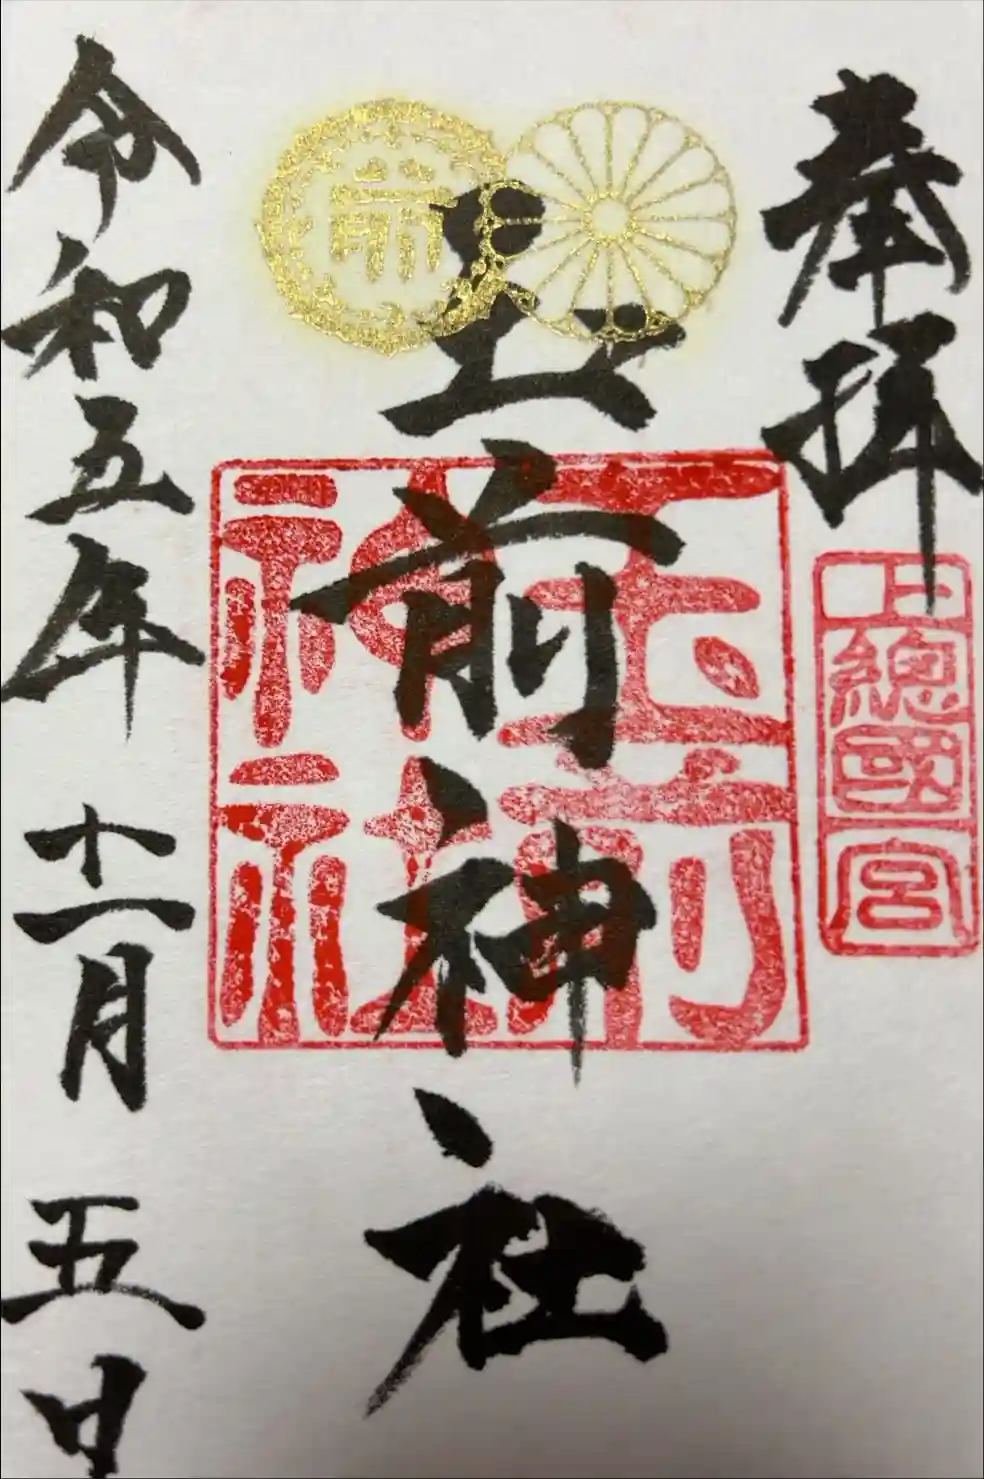 奉拝
上總國一宮
玉前神社
玉前
神社
令和五年 十一月 五日